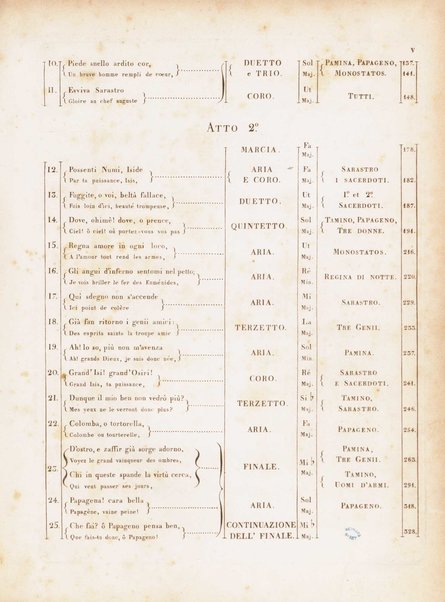 V
10. Piede snello ardito cor, DUETTO Sol PAMINA, PAPAGENO, 137.
Un brave homme rempli de coeur, e TRIO. Maj. MONOSTATOS. 141.
11. Evviva Sarastro CORO. Ut TUTTI. 148.
Gloire au chef auguste Maj.
ATTO 2º
MARCIA. Fa Maj. 178.
12. Possenti Numi, Iside ARIA Fa SARASTRO
Par ta puissance, Isis, E CORO. Maj. I SACERDOTI. 182.
13. Fuggite, o voi, beltà fallace, DUETTO. Ut 1º et 2º
Fuis loin d'ici, beauté trompeuse, Maj. SACERDOTI. 187.
14. Dove, ohimè! dove, o prence, QUINTETTO. Sol TAMINO, PAPAGENO,
Ciel! ô ciel! où portez-vous vos pas Maj. TRE DONNE. 191.
15. Regna amore in ogni loco, ARIA. Ut MONOSTATOS. 216.
A l'amour tout rend les armes, Maj.
16. Gli angui d'inferno sentomi nel petto, ARIA. Ré REGINA DI NOTTE. 220.
Je vois briller le fer des Euménides, Min.
17. Qui sdegno non s'accende ARIA. Mi SARASTRO. 229.
Ici point de colère Maj.
18. Già fan ritorno i genii amici: TERZETTO. La TRE GENII. 233.
Des esprits sainte la troupe amie Maj.
19. Ah! lo so, più non m'avenza ARIA. Sol PAMINA. 237.
Ah! grands Dieux, je suis donc née, Min.
20. Grand' Isi! grand' Osiri! CORO. Ré SARASTRO
Grand Isis, ta puissance, Maj. E SACERDOTI. 241.
21. Dunque il mio ben non vedrò più? TERZETTO. Si ♭ TAMINO,
Mes yeux ne le verront donc plus? Maj. SARASTRO. 246.
22. Colomba, o tortorella, ARIA. Fa PAPAGENO. 254.
Colombe ou tourterelle, Maj.
D'ostro, e zaffir già sorge adorno, PAMINA,
Voyez le grand vainqueur des ombres, TRE GENII. 263.
23. FINALE. Mi ♭ Maj.
Chi in queste spande la virtù cerca, TAMINO,
Qui veut passer ses jours, UOMI D'ARMI. 291.
24. Papagena! cara bella ARIA. Sol PAPAGENO. 318.
Papagène, vaine peine! Maj.
25. Che fai? ô Papageno pensa ben, CONTINUAZIONE Mi ♭
Que fais-tu donc, ô Papageno! DELL' FINALE. Maj. 328.